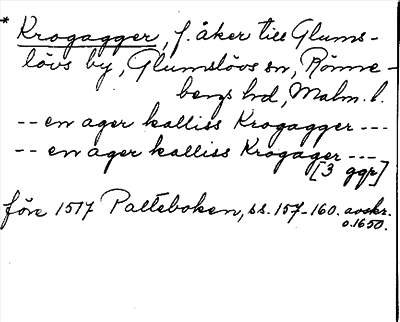 * Krogagger, f. åker till Glums-
lövs by, Glumslövs sn, Rönne-
bergs hd, Malm. l.
-- en ager kalliss Krogagger ---
-- en ager kalliss Krogager ---
[3 ggr]
före 1517 Palteboken, ss. 157-160. avskr.
o. 1650.